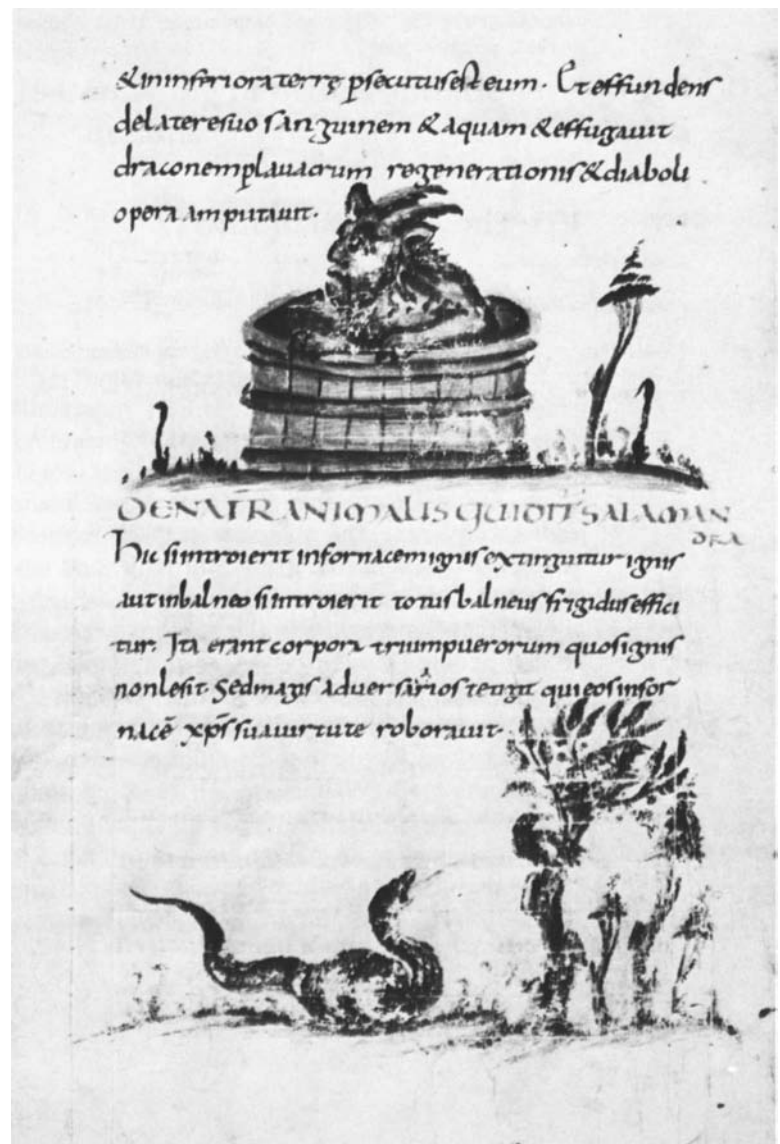 & in inferiora terrę psecutus est eum. Et effundens
de latere suo sanguinem & aquam & effugavit
draconem p lavacrum regenerationis & diaboli
opera amputavit.
DE NATR ANIMALIS QUI DIT SALAMAN
DRA
Hic si introierit in fornacem ignis extinguitur ignis
aut in balneo si introierit totus balneus frigidus effici
tur. Ita erant corpora trium puerorum quos ignis
non lesit. Sed magis adversarios tetigit qui eos in for
nacē xp̄s sua virtute roboravit.